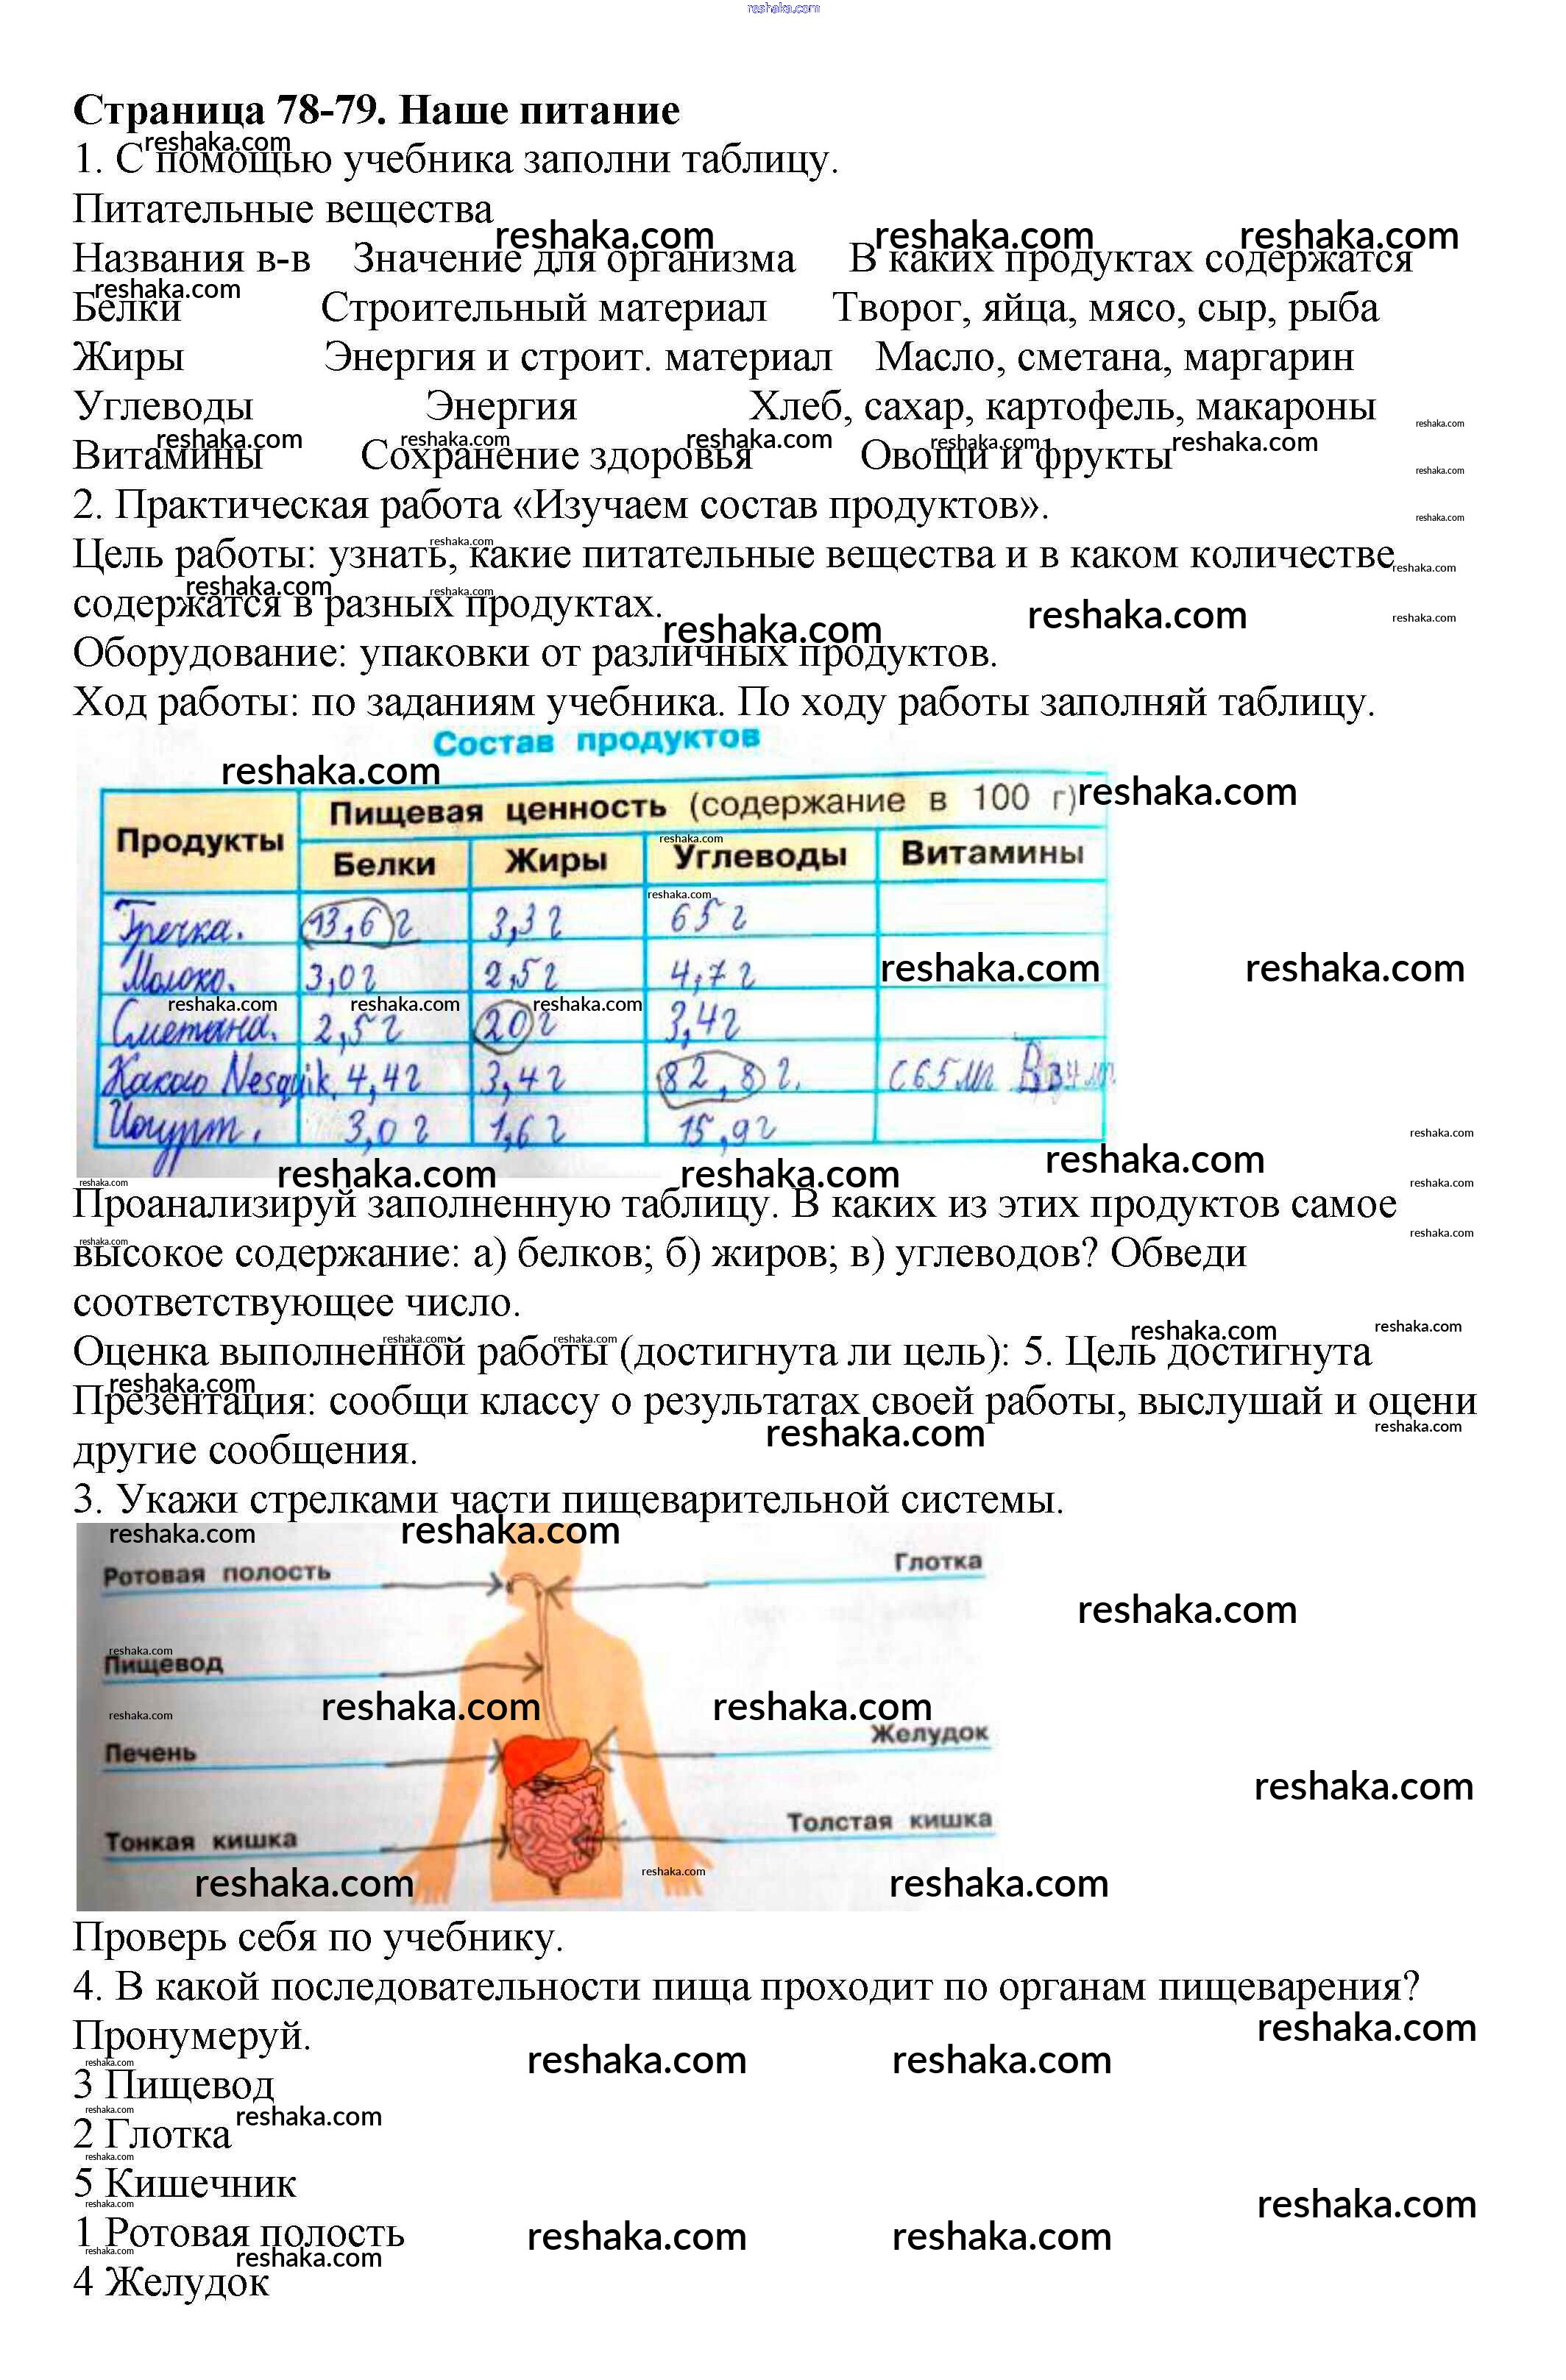 reshaka.com
Страница 78-79. Наше питание
1. С помощью учебника заполни таблицу.
Питательные вещества
Названия в-в Значение для организма В каких продуктах содержатся
Белки Строительный материал Творог, яйца, мясо, сыр, рыба
Жиры Энергия и строит. материал Масло, сметана, маргарин
Углеводы Энергия Хлеб, сахар, картофель, макароны
Витамины Сохранение здоровья Овощи и фрукты
2. Практическая работа «Изучаем состав продуктов».
Цель работы: узнать, какие питательные вещества и в каком количестве
содержатся в разных продуктах.
Оборудование: упаковки от различных продуктов.
Ход работы: по заданиям учебника. По ходу работы заполняй таблицу.
Состав продуктов
Продукты Пищевая ценность (содержание в 100 г)
Белки Жиры Углеводы Витамины
Гречка. 13,6 г 3,3 г 65 г
Молоко. 3,0 г 2,5 г 4,7 г
Сметана. 2,5 г 20 г 3,4 г
Какао Nesquik. 4,4 г 3,4 г 82,8 г. С 65 мг
Йогурт. 3,0 г 1,6 г 15,9 г
Проанализируй заполненную таблицу. В каких из этих продуктов самое
высокое содержание: а) белков; б) жиров; в) углеводов? Обведи
соответствующее число.
Оценка выполненной работы (достигнута ли цель): 5. Цель достигнута
Презентация: сообщи классу о результатах своей работы, выслушай и оцени
другие сообщения.
3. Укажи стрелками части пищеварительной системы.
Ротовая полость Глотка
Пищевод
Печень Желудок
Тонкая кишка Толстая кишка
Проверь себя по учебнику.
4. В какой последовательности пища проходит по органам пищеварения?
Пронумеруй.
3 Пищевод
2 Глотка
5 Кишечник
1 Ротовая полость
4 Желудок